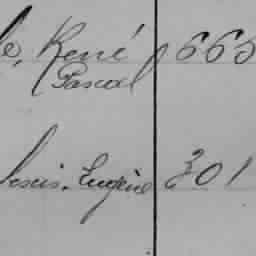 e, René 665
Pascal
Louis. Eugène 301